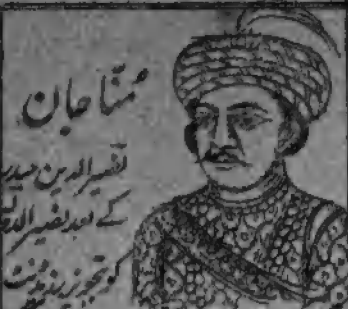 مُنّا جان
نصیر الدین حیدر
کے بعد نصیر الدولہ
کو بتجویز رزیڈنٹ